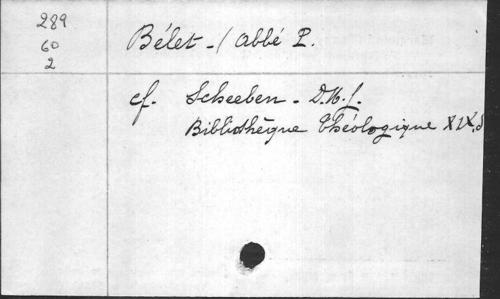 289
60
2
Bélet - (abbé P.
cf. Scheeben - D. M. J.
Bibliothèque Théologique XIX.s